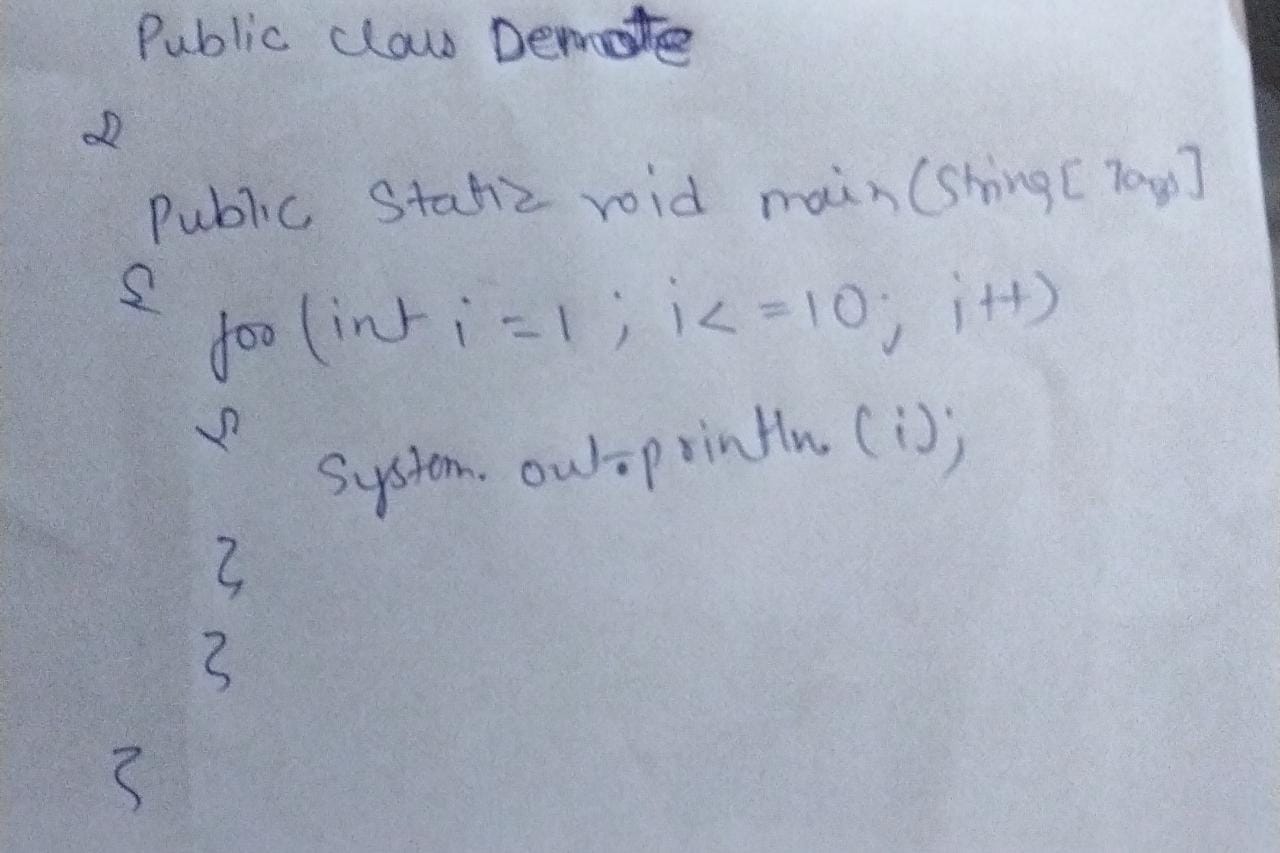 Public class Demote
{
Public Static void main(String[ ]args]
{
for(int i=1; i<=10; i++)
{
System.out.println.(i);
}
}
}